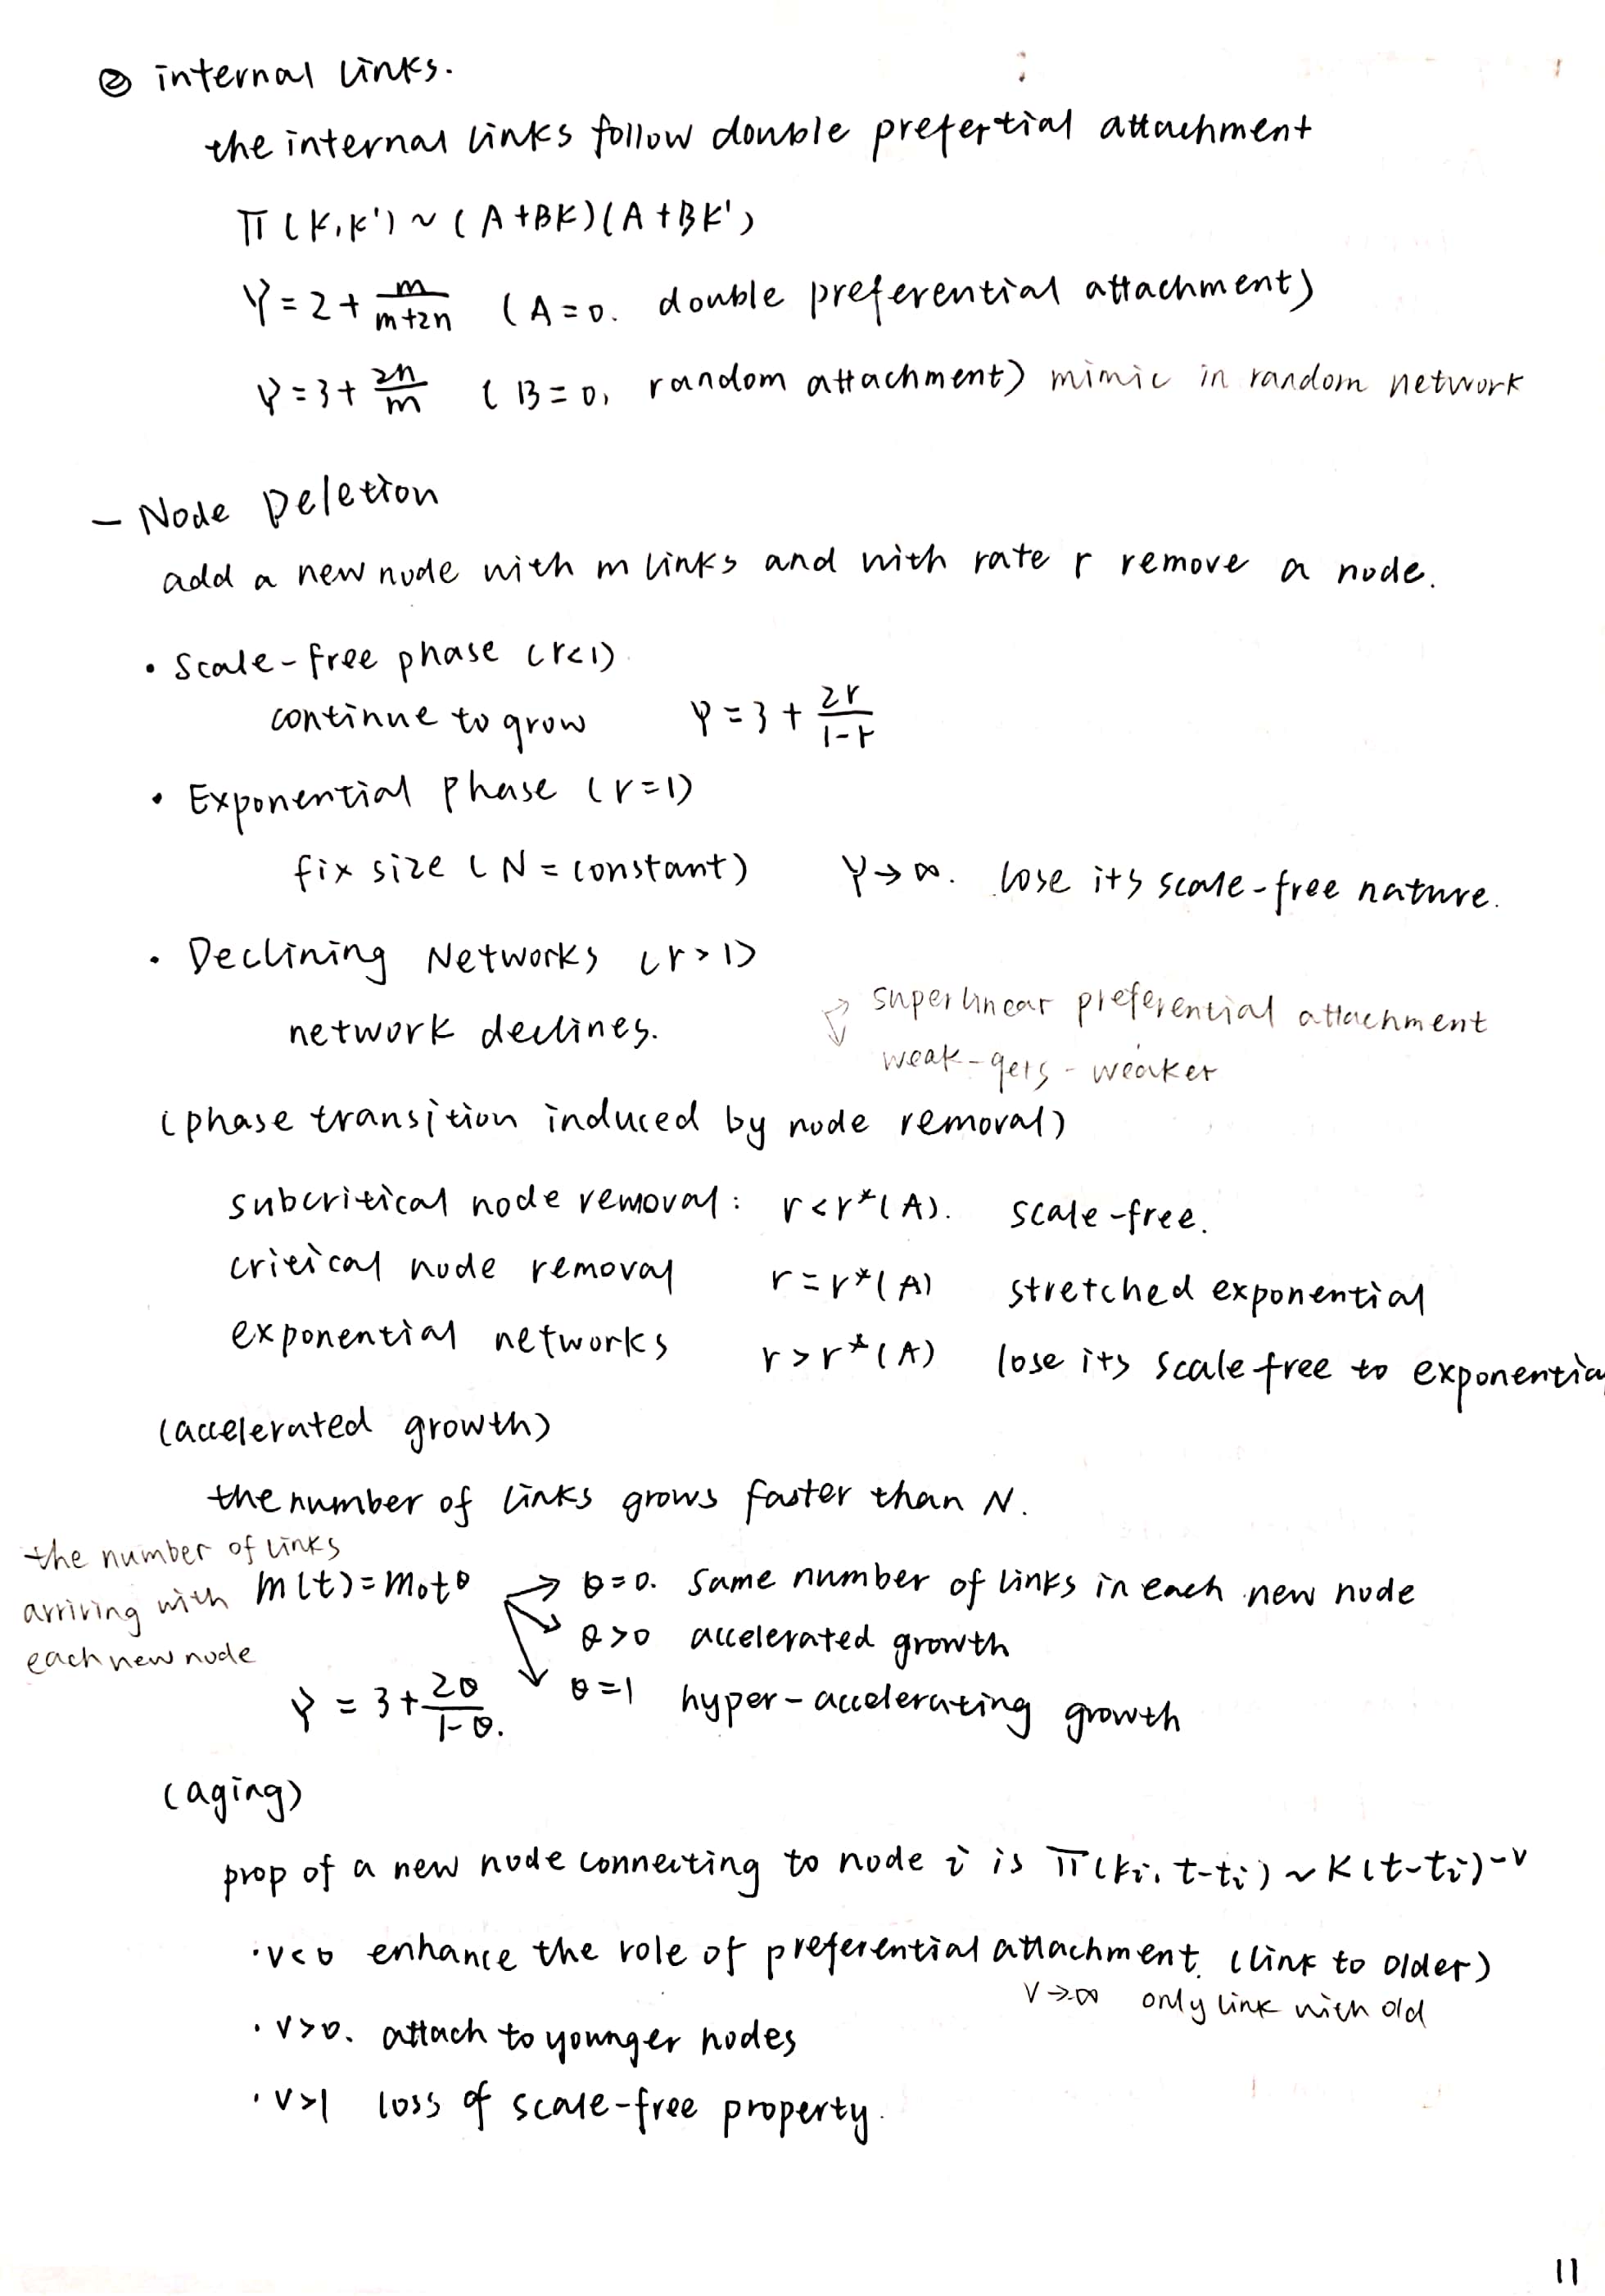 ② internal links.
the internal links follow double prefertial attachment
π(k,k') ~ (A+Bk)(A+Bk')
γ = 2 + m/(m+2n) (A=0. double preferential attachment)
γ = 3 + 2n/m (B=0, random attachment) mimic in random network
- Node Deletion
add a new node with m links and with rate r remove a node.
• Scale-free phase (r<1)
continue to grow γ = 3 + 2r/(1-r)
• Exponential Phase (r=1)
fix size (N = constant) γ→∞. lose its scale-free nature.
• Declining Networks (r>1)
network declines.
superlinear preferential attachment
weak-gets-weaker
(phase transition induced by node removal)
subcritical node removal: r<r*(A). scale-free.
critical node removal r=r*(A) stretched exponential
exponential networks r>r*(A) lose its scale free to exponential
(accelerated growth)
the number of links grows faster than N.
the number of links
arriving with
each new node
m(t)=m₀t^θ → θ=0. same number of links in each new node
θ>0 accelerated growth
θ=1 hyper-accelerating growth
γ = 3 + 2θ/(1-θ).
(aging)
prop of a new node connecting to node i is π(ki, t-ti) ~ k(t-ti)^-v
·v<0 enhance the role of preferential attachment. (link to older)
v→∞ only link with old
·v>0. attach to younger nodes
·v>1 loss of scale-free property.
11